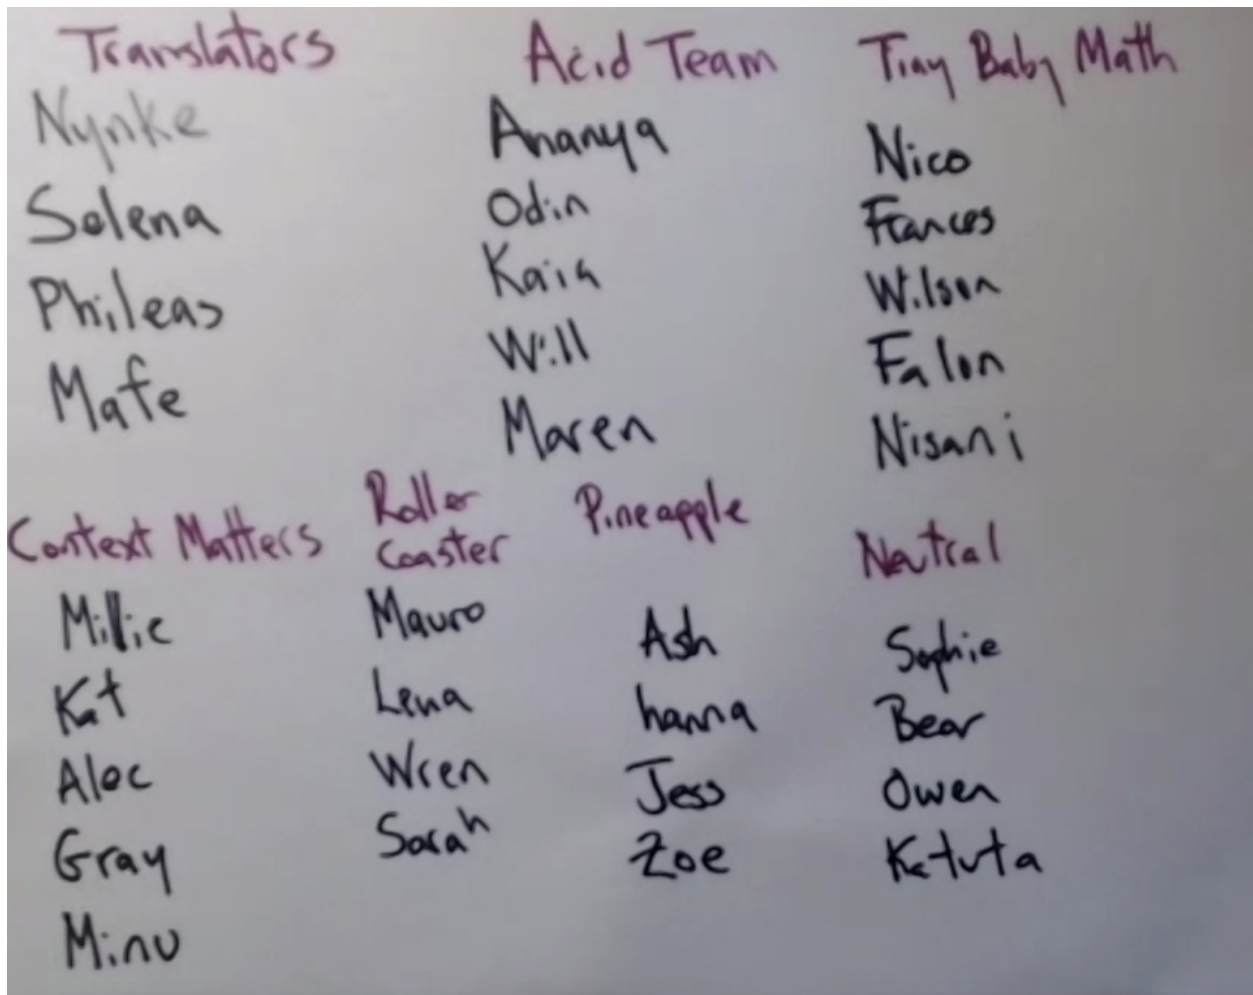 Translators
Nynke
Selena
Phileas
Mafe
Acid Team
Ananya
Odin
Kaia
Will
Maren
Tiny Baby Math
Nico
Frances
Wilson
Falon
Nisani
Context Matters
Millie
Kat
Alec
Gray
Minu
Roller
Coaster
Mauro
Lena
Wren
Sarah
Pineapple
Ash
hanna
Jess
Zoe
Neutral
Sophie
Bear
Owen
Ketuta